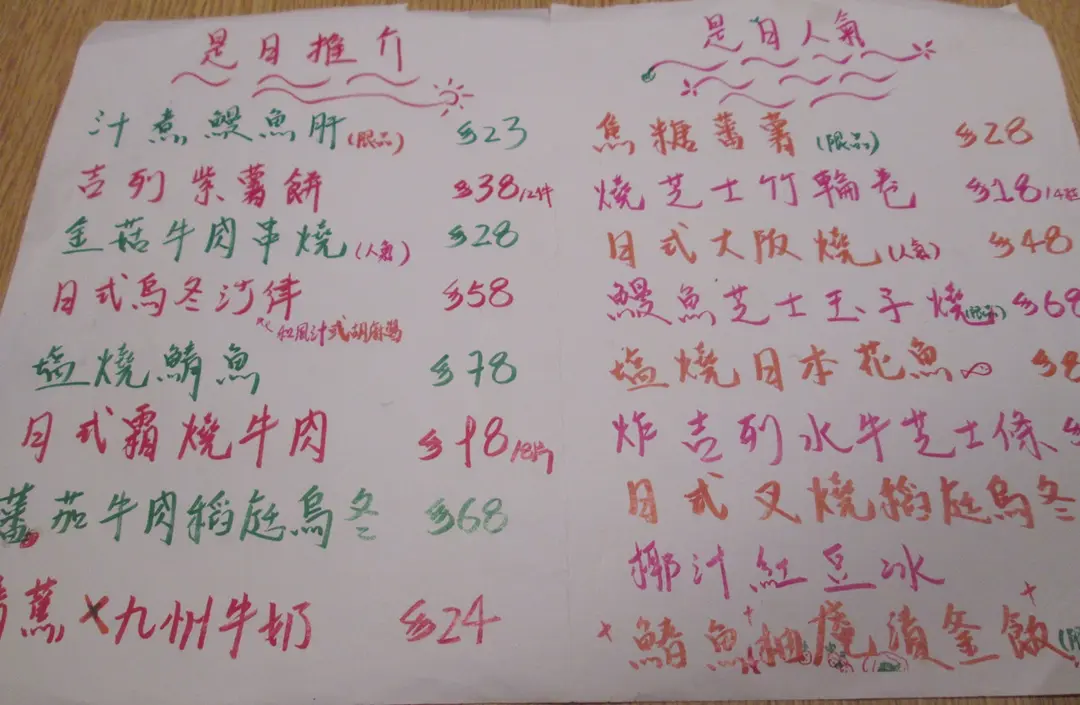 是日推介
汁煮鰻魚肝(限品) $23
吉列紫薯餅 $38/2件
金菇牛肉串燒(人氣) $28
日式烏冬沙律 $58
和風汁或胡麻醬
塩燒鯖魚 $78
日式霜燒牛肉 $98/8片
蕃茄牛肉稻庭烏冬 $68
蕉×九州牛奶 $24
是日人氣
焦糖蕃薯(限品) $28
燒芝士竹輪卷 $18/4粒
日式大阪燒(人氣) $48
鰻魚芝士玉子燒(限品) $68
塩燒日本花魚 $8
炸吉列水牛芝士條 $
日式叉燒稻庭烏冬
椰汁紅豆冰
鰭魚柚漬釜飯